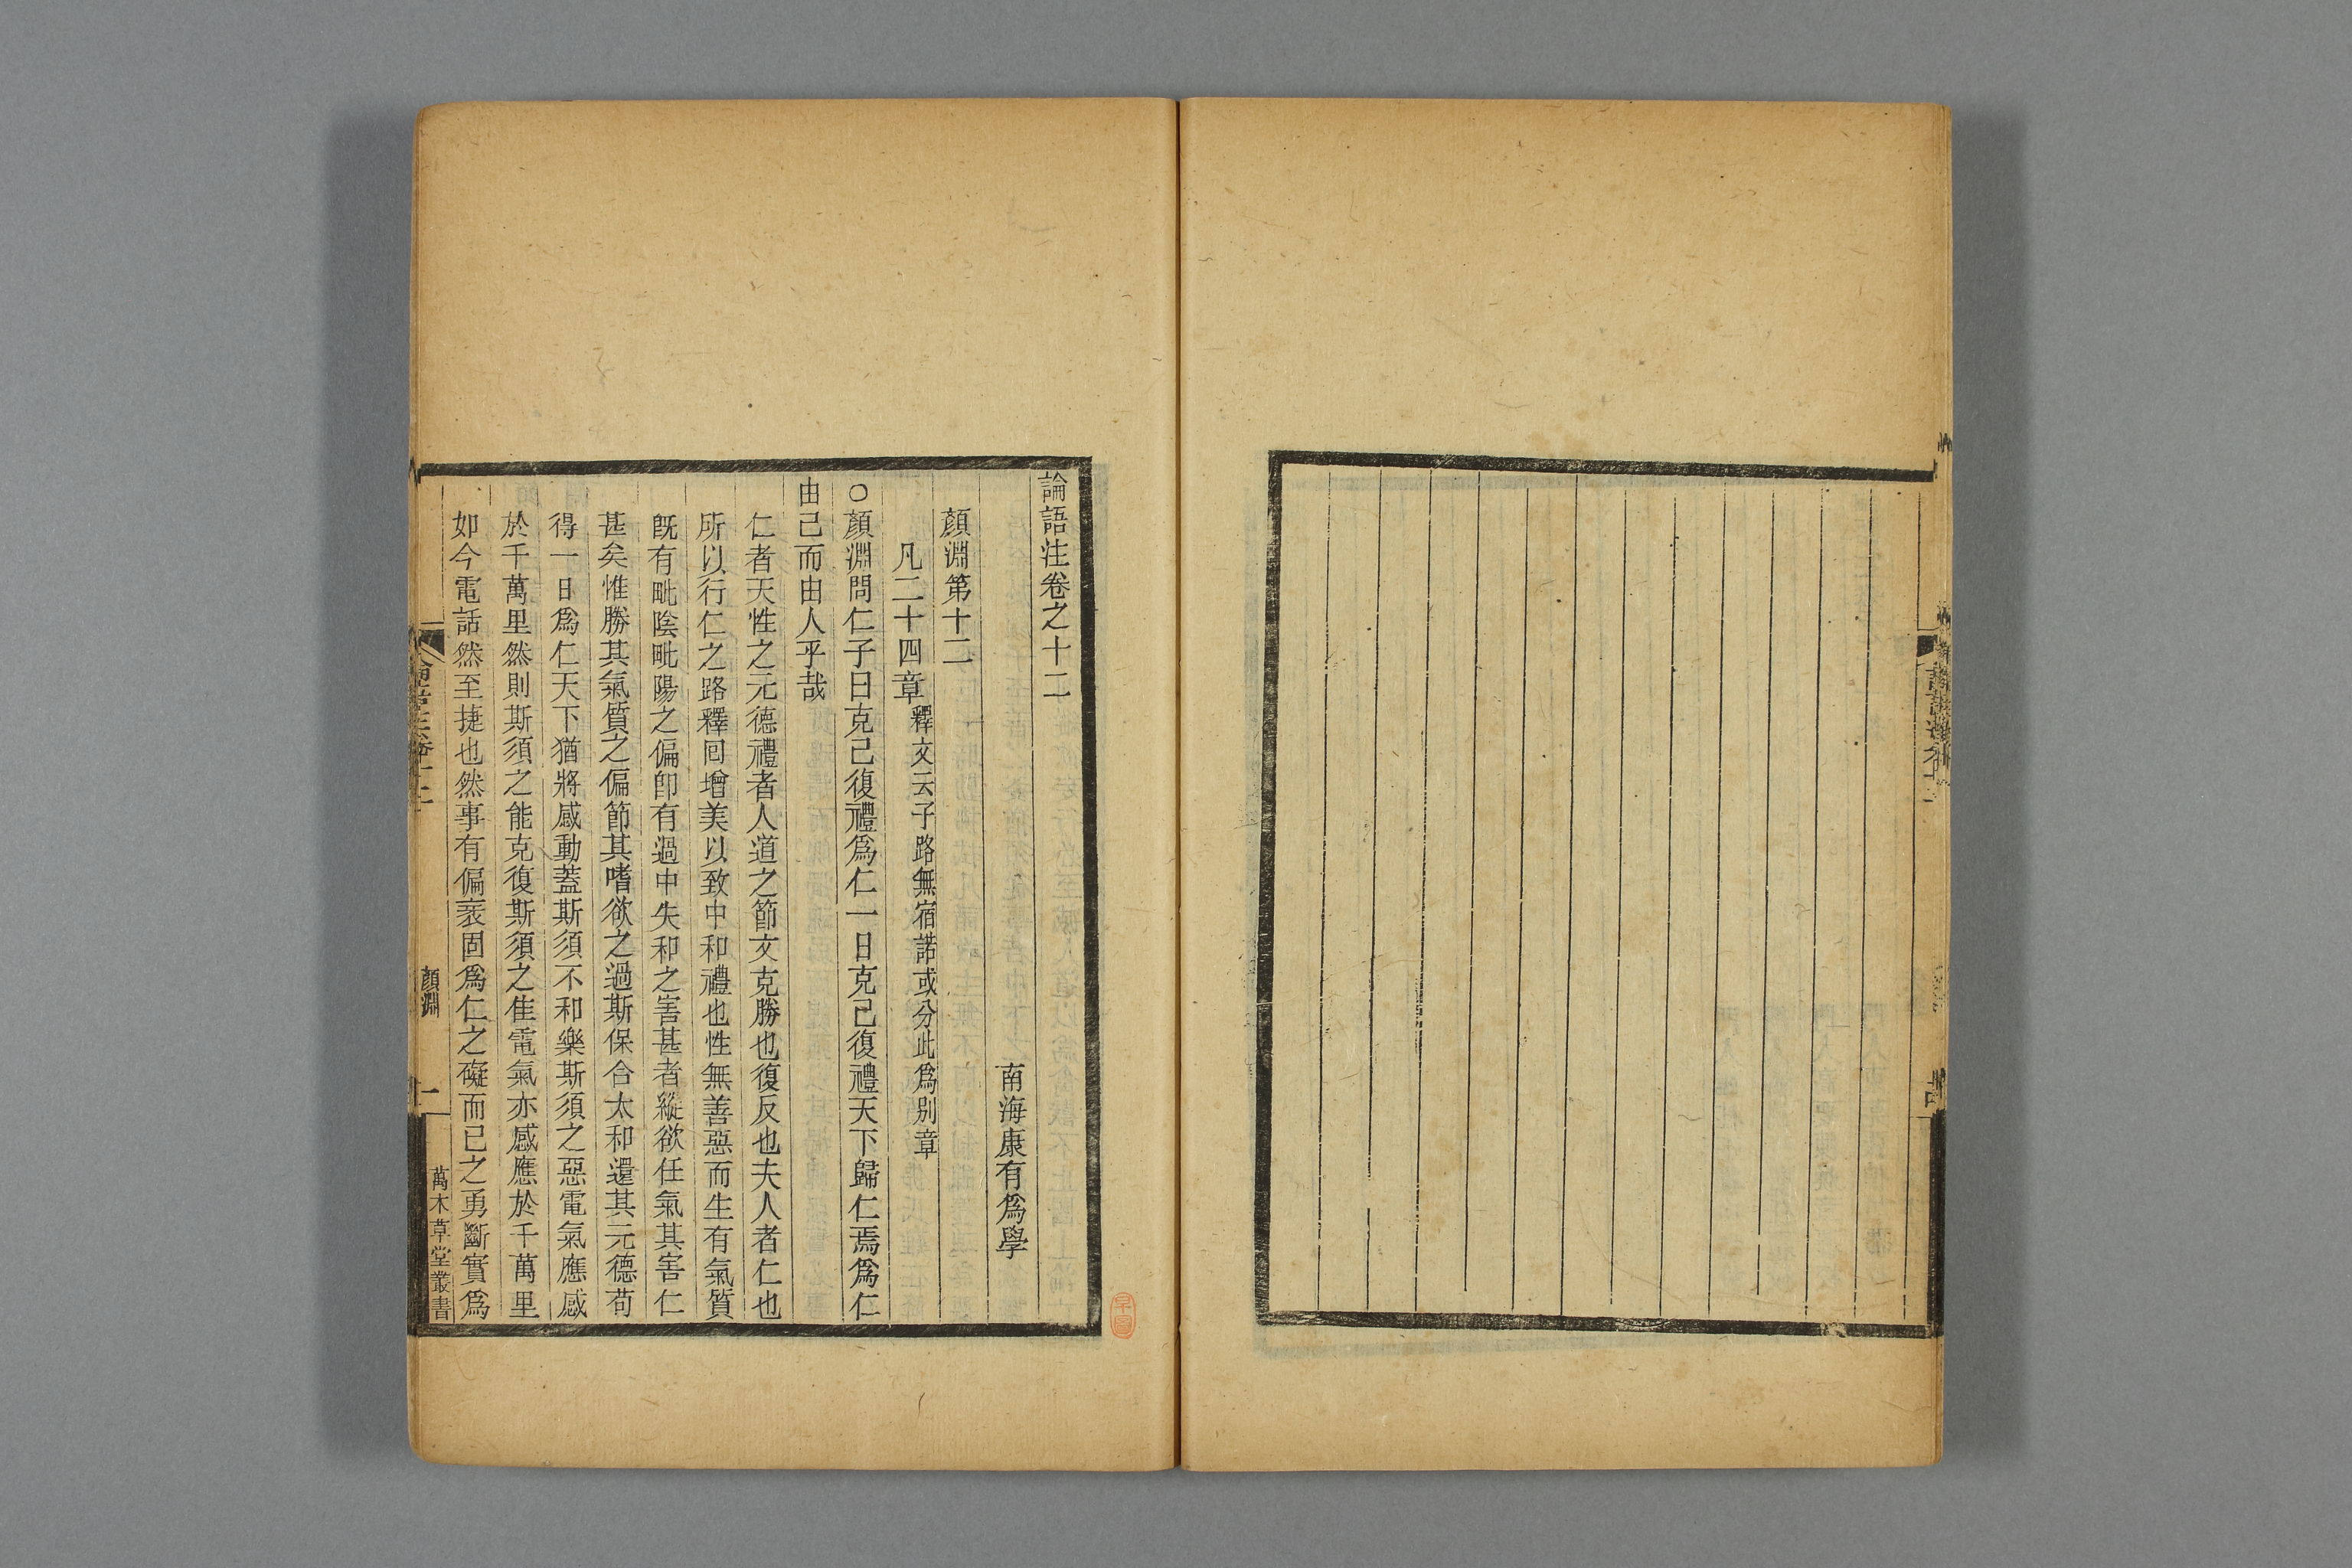 論語注卷之十二
南海康有爲學
顏淵第十二
凡二十四章釋文云子路無宿諾或分此爲別章
○顏淵問仁子曰克己復禮爲仁一日克己復禮天下歸仁焉爲仁
由己而由人乎哉
仁者天性之元德禮者人道之節文克勝也復反也夫人者仁也
所以行仁之路釋回增美以致中和禮也性無善惡而生有氣質
旣有毗陰毗陽之偏卽有過中失和之害甚者縱欲任氣其害仁
甚矣惟勝其氣質之偏節其嗜欲之過斯保合太和還其元德苟
得一日爲仁天下猶將感動蓋斯須不和樂斯須之惡電氣應感
於千萬里然則斯須之能克復斯須之佳電氣亦感應於千萬里
如今電話然至捷也然事有偏衺固爲仁之礙而己之勇斷實爲
顏淵
一
萬木草堂叢書